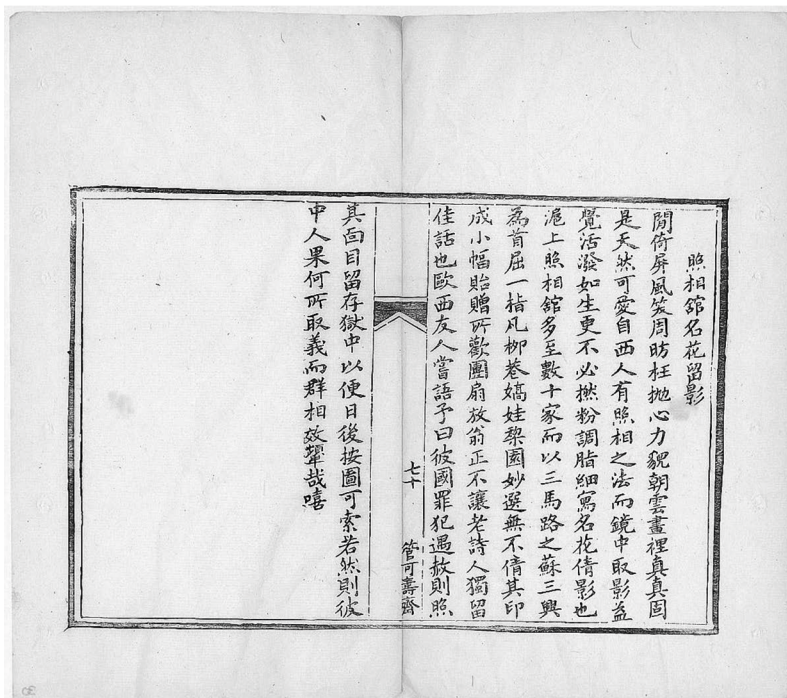 照相舘名花留影
閒倚屏風笑周昉枉拋心力貌朝雲畫裡真真固
是天然可愛自西人有照相之法而鏡中取影益
覺活潑如生更不必撚粉調脂細寫名花倩影也
滬上照相舘多至數十家而以三馬路之蘇三興
為首屈一指凡柳巷嬌娃棃園妙選無不倩其印
成小幅貽贈所歡團扇放翁正不讓老詩人獨留
佳話也歐西友人嘗語予曰彼國罪犯遇赦則照
七十
管可壽齋
其面目留存獄中以便日後按圖可索若然則彼
中人果何所取義而群相效顰哉嘻